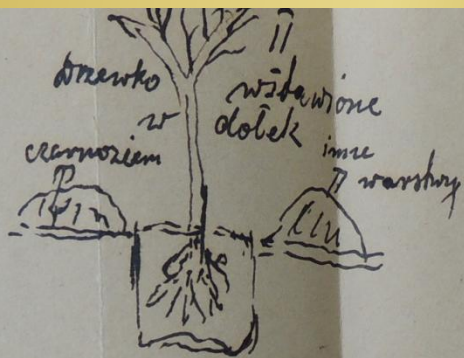 II
drzewko wstawione
w dołek
czarnoziem
inne
II warstwy